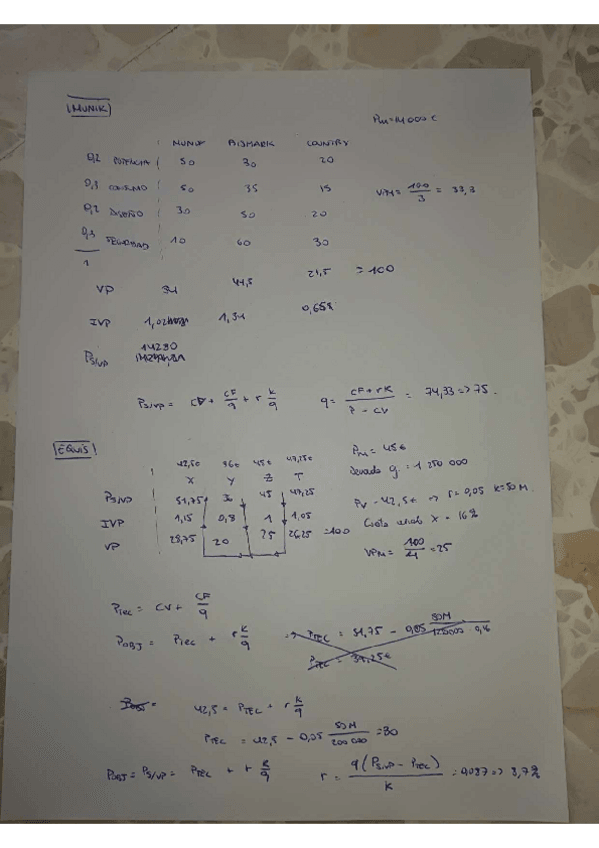 MUNIK
Pm=14000€
MUNOF BISMARK COUNTRY
0,2 POTENCIA 50 30 20
0,3 CONSUMO 50 35 15
VPM = 100/3 = 33,3
0,2 DISEÑO 30 50 20
0,3 10 60 30
1
VP 34 44,5 21,5 = 100
IVP 1,02 1,34 0,658
PS/VP 14280
PS/VP = CV + CF/q + r K/q q = CF+rK/P-CV = 74,33 => 75.
EQUIS
42,5€ 36€ 45€ 47,25€
X Y Z T
PS/VP 51,75 36 45 47,25
IVP 1,15 0,8 1 1,05
VP 28,75 20 25 26,25 = 100
Pm = 45€
q = 1 250 000
PV = 42,5€ => r = 0,05 K=50M.
Cuota X = 16%
VPM = 100/4 = 25
PTEC = CV + CF/q
POBJ = PTEC + r K/q => PTEC = 51,75 - 0,05 50M/1250000 0,16
PTEC = 39,25€
42,5 = PTEC + r K/q
PTEC = 42,5 - 0,05 50M/200 000 = 30
POBJ = PS/VP = PTEC + r K/q r = q(PS/VP - PTEC)/K = 0,087 => 8,7%